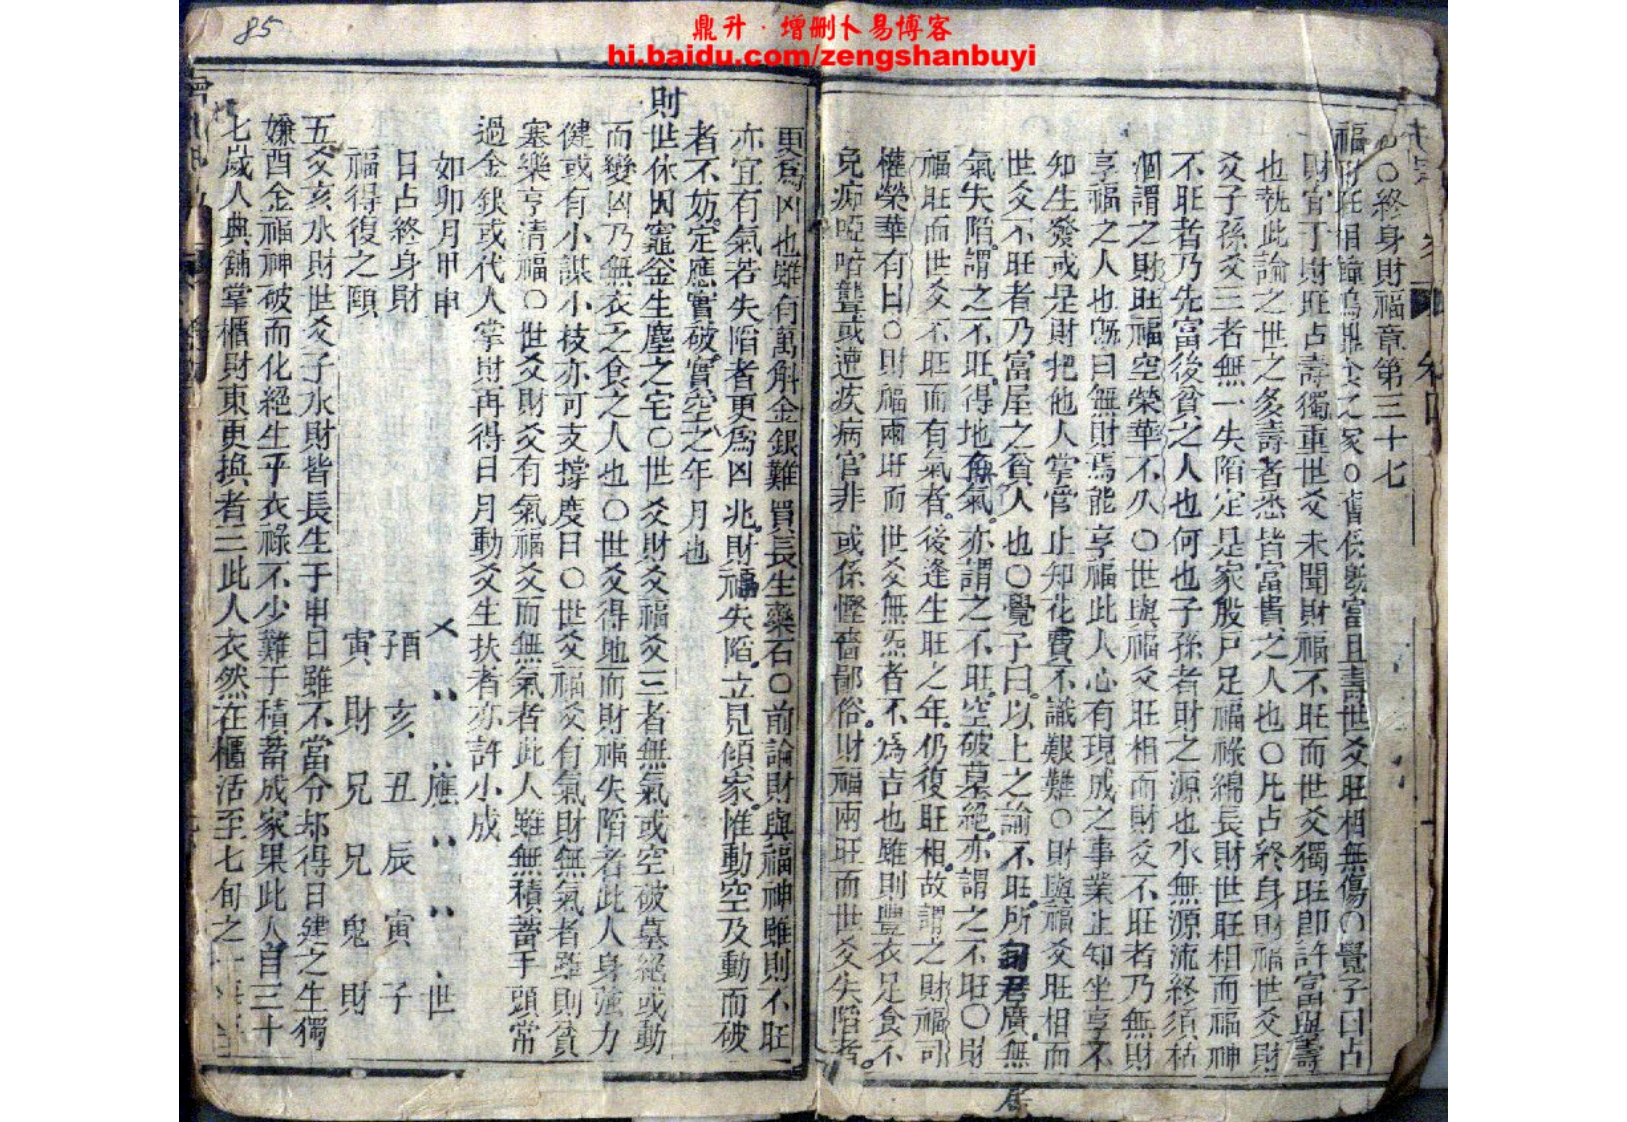 85
鼎升·增删卜易博客
hi.baidu.com/zengshanbuyi
○終身財福章第三十七
福財旺相鐘鳴鼎食之家○舊係旣富且壽世爻旺相無傷○覺子曰占
財宜于財旺占壽獨重世爻未聞財福不旺而世爻獨旺卽許富與壽
也執此論之世之多壽者悉皆富貴之人也○凡占終身財福世爻財
爻子孫爻三者無一失陷定是家殷戶足福祿綿長財世旺相而福神
不旺者乃先富後貧之人也何也子孫者財之源也水無源流終須枯
涸謂之財旺福空榮華不久○世與福爻旺相而財爻不旺者乃無財
享福之人也旣曰無財焉能享福此人心有現成之事業止知坐享不
知生發或是財把他人掌管止知花費不識艱難○財與福爻旺相而
世爻不旺者乃富屋之貧人也○覺子曰以上之論不旺所 君廣無
氣失陷謂之不旺得地 氣亦謂之不旺空破墓絕亦謂之不旺○財
福旺而世爻不旺而有氣者後逢生旺之年仍復旺相故謂之財福司
權榮華有日○財福兩旺而世爻無炁者不爲吉也雖則豐衣足食不
免痴啞喑聾或遭疾病官非或係慳嗇鄙俗財福兩旺而世爻失陷者
更爲凶也雖有萬斛金銀難買長生藥石○前論財與福神雖則不旺
亦宜有氣若失陷者更爲凶兆財福失陷立見傾家惟動空及動而破
者不妨定應實破實空之年月也
財世休囚竈釜生塵之宅○世爻財爻福爻三者無氣或空破墓絕或動
而變凶乃無衣乏食之人也○世爻得地而財福失陷者此人身強力
健或有小謀小技亦可支撐度日○世爻福爻有氣財無氣者雖則貧
寒樂享清福○世爻財爻有氣福爻而無氣者此人雖無積蓄手頭常
過金銀或代人掌財再得日月動爻生扶者亦許小成
如卯月甲申 應 世
日占終身財 子酉 亥 丑 辰 寅 子
福得復之頤 寅 財 兄 兄 鬼 財
五爻亥水財世爻子水財皆長生于申日雖不當令却得日建之生獨
嫌酉金福神破而化絕生平衣祿不少難于積蓄成家果此人自三十
七歲人典鋪掌櫃財東更換者三此人衣然在櫃活至七旬之